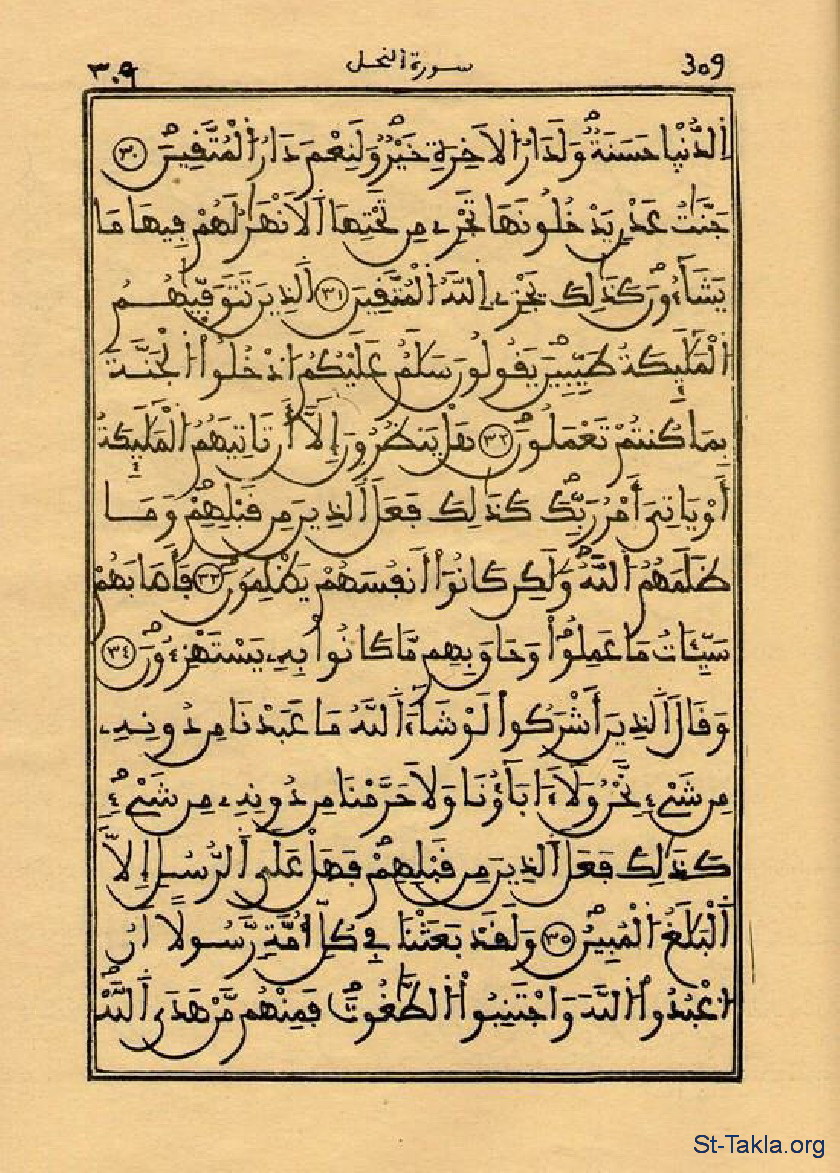 ٣٠٩ سورة النحل 309
اِ۬لدُّنْيٜا حَسَنَةٞ وَلَدَارُ اُ۬لَاخِرَةِ خَيْرٞ وَلَنِعْمَ دَارُ اُ۬لْمُتَّقِينَ ٣٠
جَنَّٰتُ عَدْنٖ يَدْخُلُونَهَا تَجْرِے مِن تَحْتِهَا اَ۬لَانْهَٰرُ لَهُمْ فِيهَا مَا
يَشَآءُونَ كَذَٰلِكَ يَجْزِے اِ۬للَّهُ اُ۬لْمُتَّقِينَ ٣١ اَ۬لذِينَ تَتَوَفّٜيٰهُمُ
اُ۬لْمَلَٰٓئِكَةُ طَيِّبِينَ يَقُولُونَ سَلَٰمٌ عَلَيْكُمُ اُ۟دْخُلُواْ اُ۬لْجَنَّةَ
بِمَا كُنتُمْ تَعْمَلُونَ ٣٢ هَلْ يَنظُرُونَ إِلَّآ أَن تَاتِيَهُمُ اُ۬لْمَلَٰٓئِكَةُ
أَوْ يَاتِيَ أَمْرُ رَبِّكَ كَذَٰلِكَ فَعَلَ اَ۬لذِينَ مِن قَبْلِهِمْ وَمَا
ظَلَمَهُمُ اُ۬للَّهُ وَلَٰكِن كَانُوٓاْ أَنفُسَهُمْ يَظْلِمُونَ ٣٣ فَأَصَابَهُمْ
سَيِّـَٔاتُ مَا عَمِلُواْ وَحَاقَ بِهِم مَّا كَانُواْ بِهِۦ يَسْتَهْزِءُونَ ٣٤
وَقَالَ اَ۬لذِينَ أَشْرَكُواْ لَوْ شَآءَ اَ۬للَّهُ مَا عَبَدْنَا مِن دُونِهِۦ
مِن شَےْءٖ نَّحْنُ وَلَآ ءَابَآؤُنَا وَلَا حَرَّمْنَا مِن دُونِهِۦ مِن شَےْءٖ
كَذَٰلِكَ فَعَلَ اَ۬لذِينَ مِن قَبْلِهِمْ فَهَلْ عَلَى اَ۬لرُّسُلِ إِلَّا
اَ۬لْبَلَٰغُ اُ۬لْمُبِينُ ٣٥ وَلَقَدْ بَعَثْنَا فِے كُلِّ أُمَّةٖ رَّسُولًا اَنُ
اُ۟عْبُدُواْ اُ۬للَّهَ وَاجْتَنِبُواْ اُ۬لطَّٰغُوتَ فَمِنْهُم مَّنْ هَدَي اَ۬للَّهُ
St-Takla.org